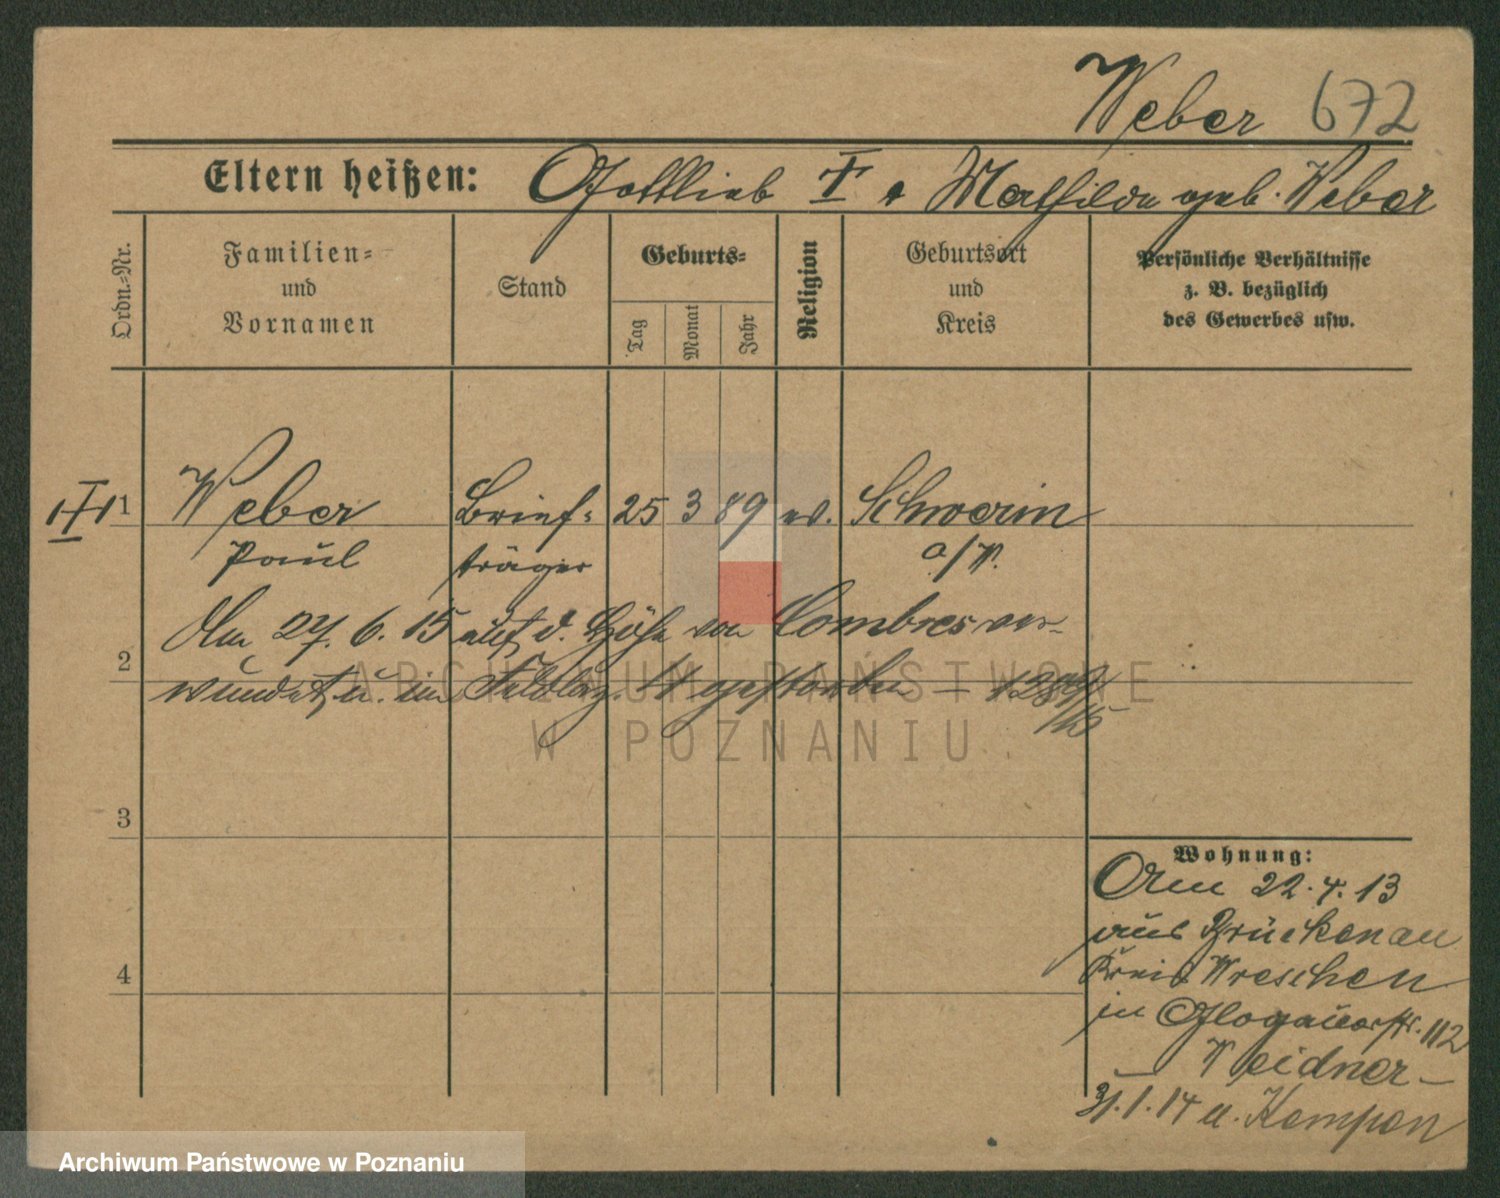 Weber 672
Eltern heißen: Gottlieb † u Mathilde geb. Weber
Ordn.-Nr.
Familien-
und
Vornamen
Stand
Geburts-
Tag
Monat
Jahr
Religion
Geburtsort
und
Kreis
Persönliche Verhältnisse
z. B. bezüglich
des Gewerbes usw.
1 Weber Brief- 25 3 89 ev. Schwerin
Paul träger a/W.
Am 27. 6. 15 auf d. Höhe von Combres ver-
2
wundet u. im Feldlaz. 11 gestorben –
3
4
Wohnung:
Am 22. 4. 13
aus Brückenau
Kreis Wreschen
in Glogauerstr. 112
Weidner –
31. 1. 14 n. Kempen
ARCHIWUM PAŃSTWOWE
W POZNANIU
Archiwum Państwowe w Poznaniu